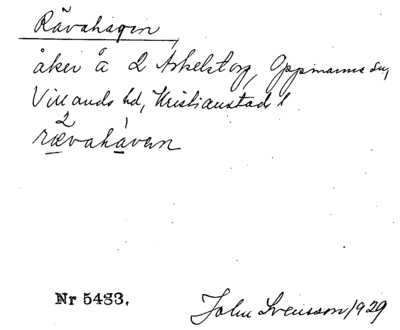 Rävahagen
åker å 2 Arkelstorg, Oppmanna sn,
Villands hd, Kristianstad l
2 1
rævahåvan
Nr 5483.
John Svensson 1929